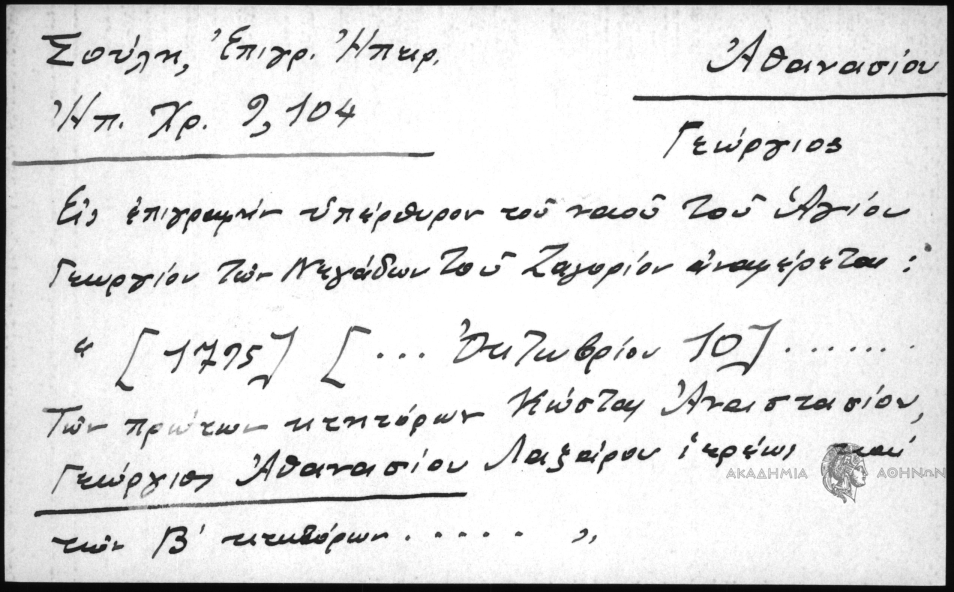 Σούλη, Ἐπιγρ. Ἠπειρ.
Ἠπ. Χρ. 9, 104
Ἀθανασίου
Γεώργιος
Εἰς ἐπιγραφὴν ὑπέρθυρον τοῦ ναοῦ τοῦ Ἁγίου
Γεωργίου τῶν Νεγάδων τοῦ Ζαγορίου ἀναφέρεται:
" [1795] [... Ὀκτωβρίου 10] .......
Τῶν πρώτων κτητόρων Κώστα Ἀναστασίου,
Γεώργιος Ἀθανασίου ἱερέως καὶ
τῶν Β' κτητόρων ..... "
ΑΚΑΔΗΜΙΑ ΑΘΗΝΩΝ